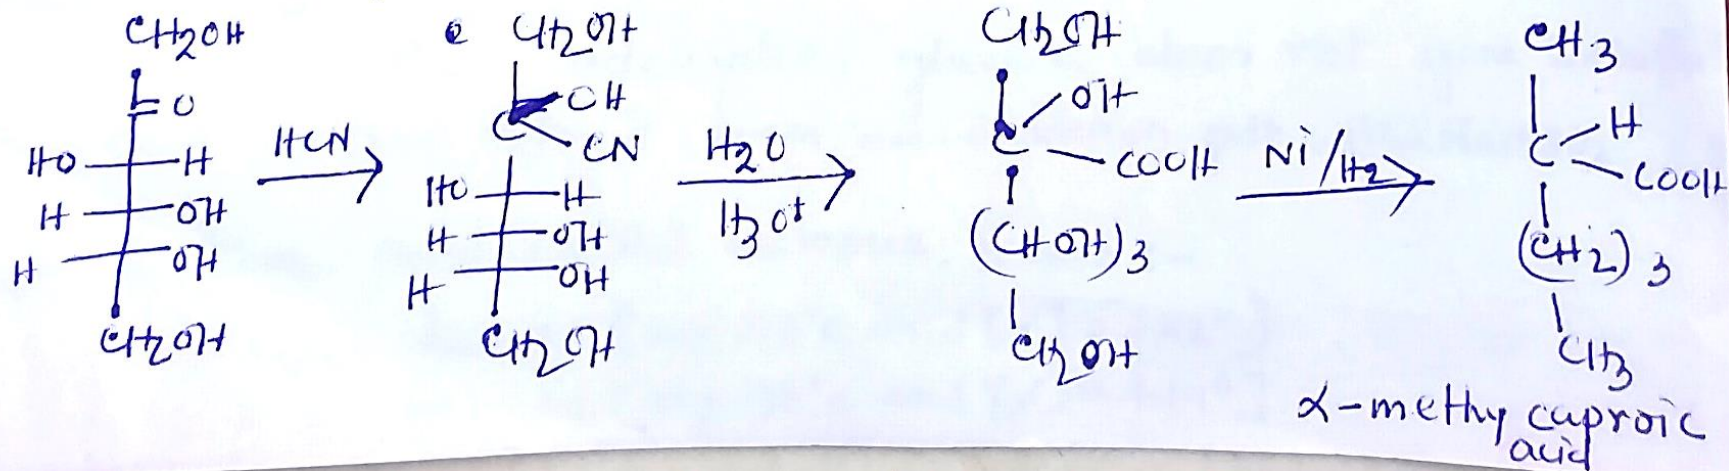 CH2OH
O
HO H
H OH
H OH
CH2OH
HCN
CH2OH
OH
C CN
HO H
H OH
H OH
CH2OH
H2O
H3O+
CH2OH
OH
C COOH
(CHOH)3
CH2OH
Ni/H2
CH3
H
C COOH
(CH2)3
CH3
α-methy caproic
acid